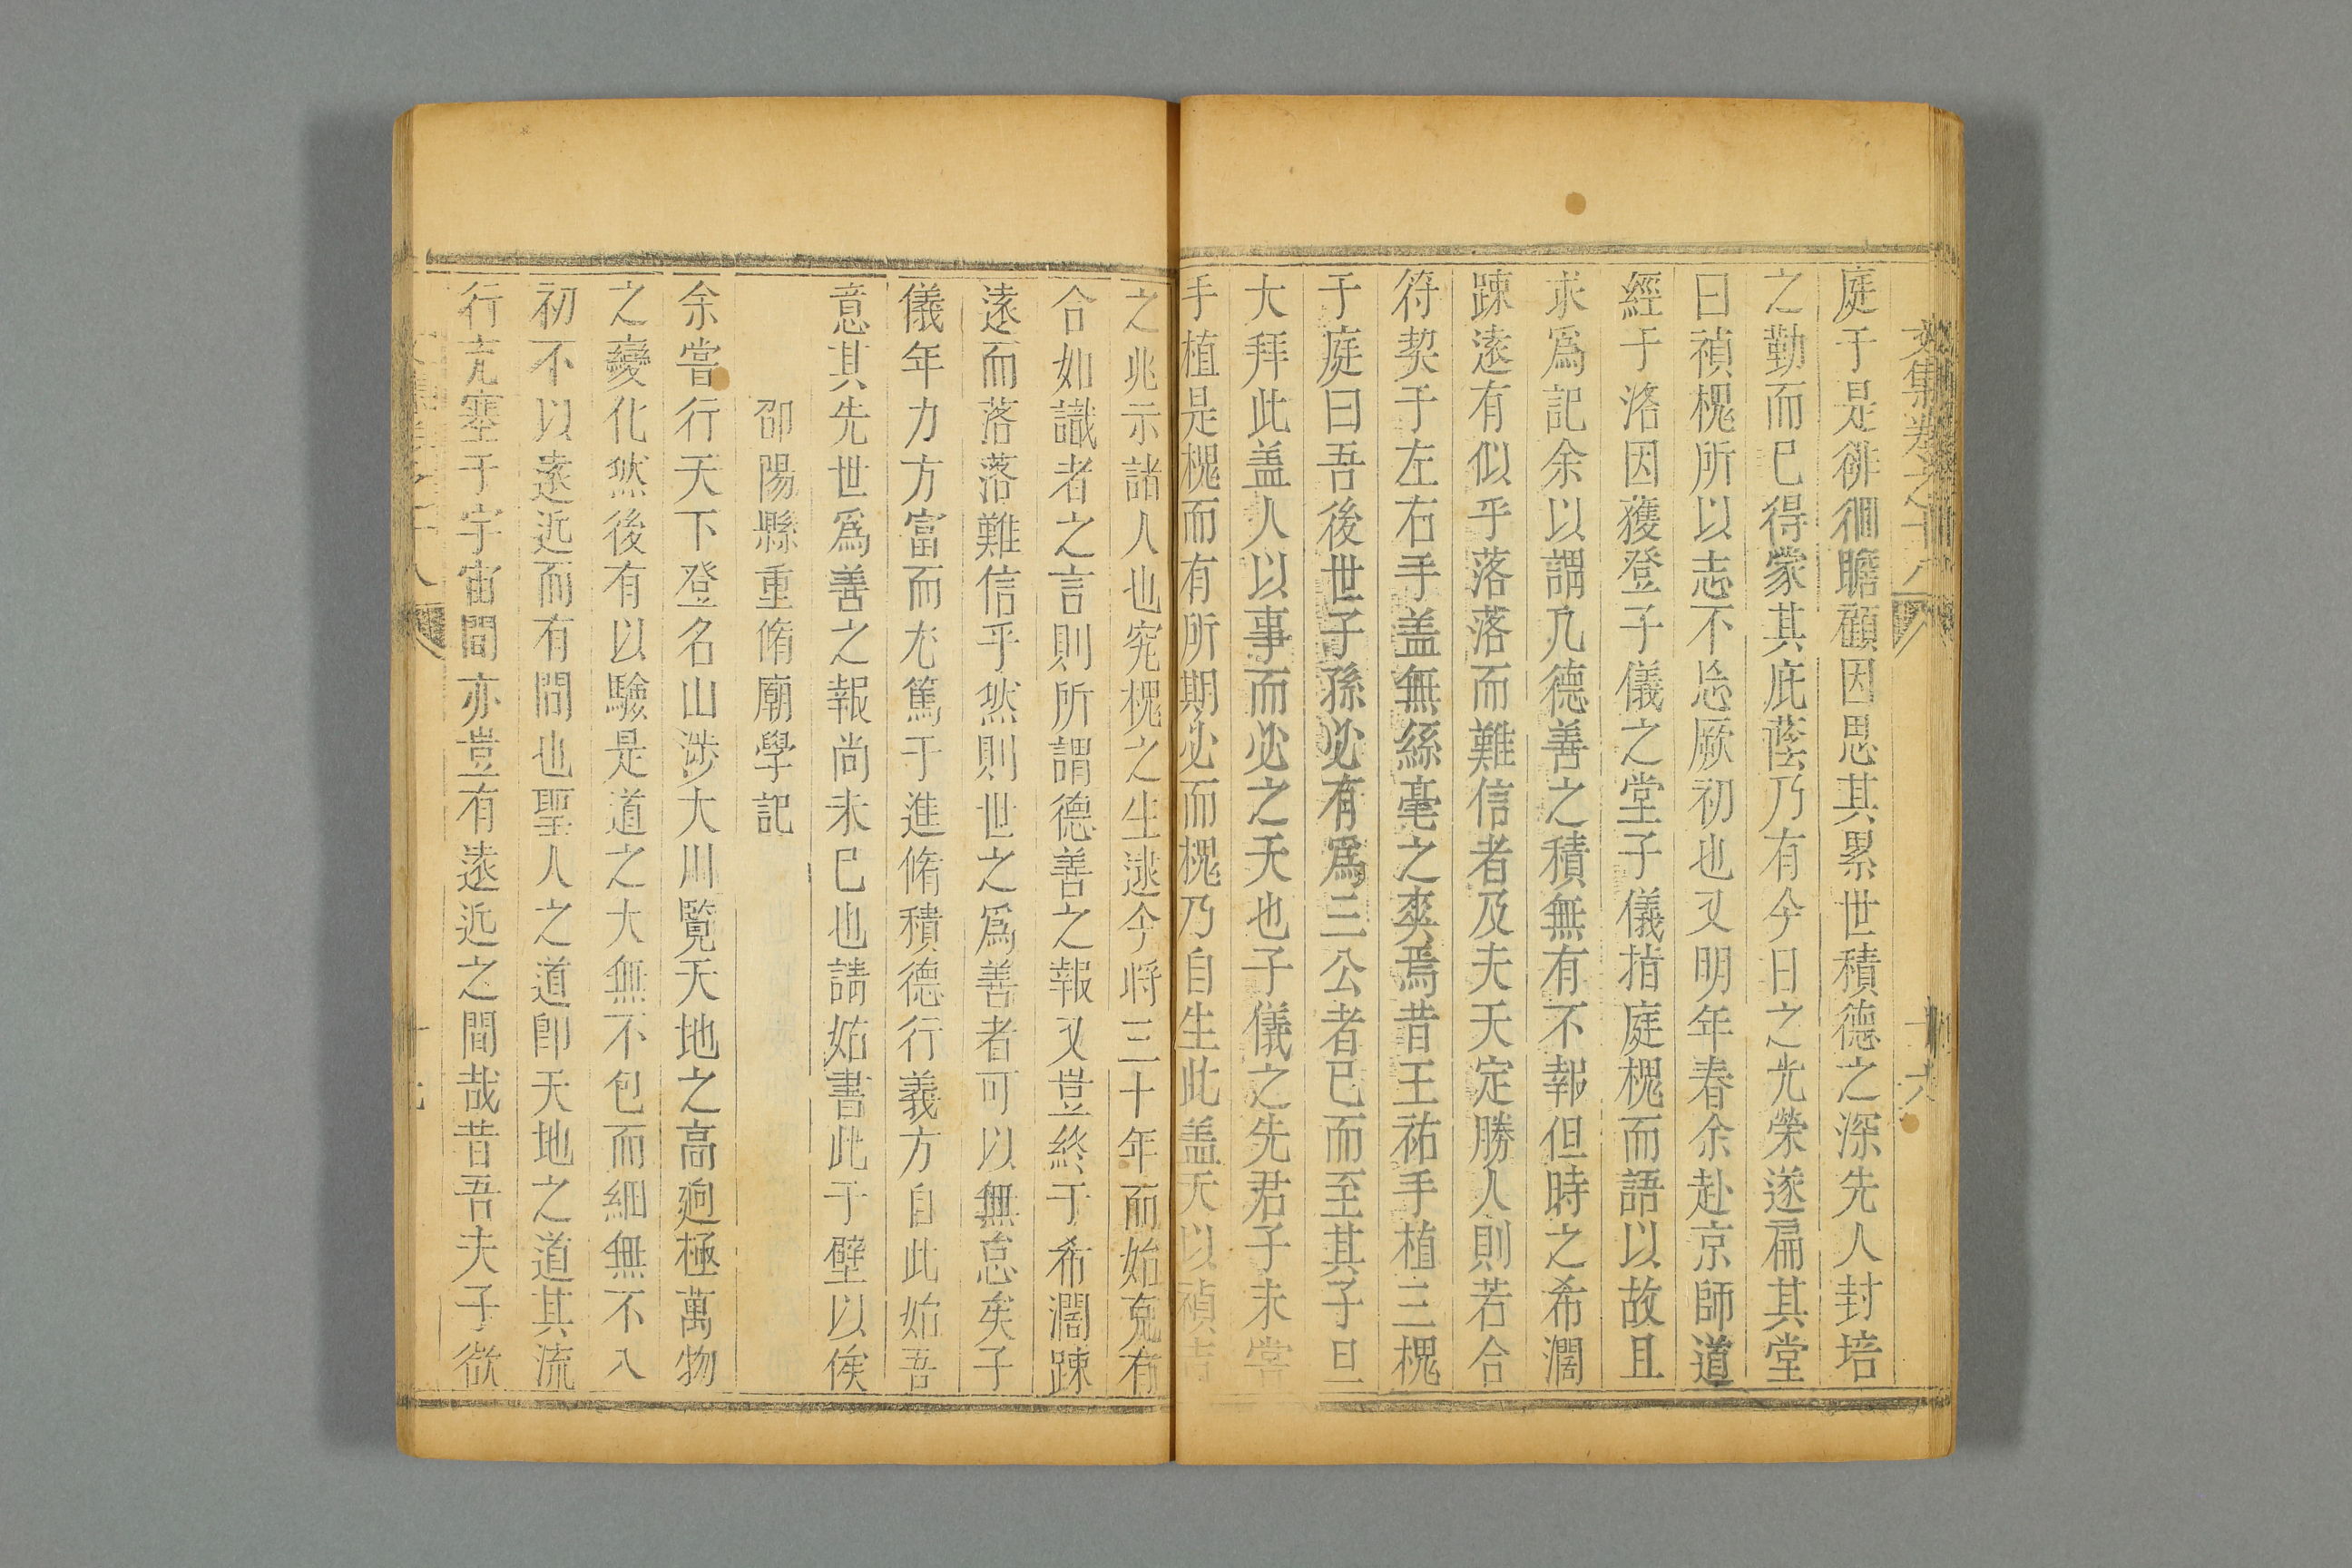 文集卷之十八
十六
庭于是徘徊瞻顧因思其累世積德之深先人封培
之勤而已得蒙其庇蔭乃有今日之光榮遂扁其堂
曰禎槐所以志不忘厥初也又明年春余赴京師道
經于洛因獲登子儀之堂子儀指庭槐而語以故且
求爲記余以謂凡德善之積無有不報但時之希濶
踈遠有似乎落落而難信者及夫天定勝人則若合
符契于左右手盖無絲毫之爽焉昔王祐手植三槐
于庭曰吾後世子孫必有爲三公者已而至其子旦
大拜此盖人以事而必之天也子儀之先君子未嘗
手植是槐而有所期必而槐乃自生此盖天以禎吉
之兆示諸人也究槐之生逮今将三十年而始克有
合如識者之言則所謂德善之報又豈終于希濶踈
遠而落落難信乎然則世之爲善者可以無怠矣子
儀年力方富而尤篤于進脩積德行義方自此始吾
意其先世爲善之報尚未已也請姑書此于壁以俟
郃陽縣重脩廟學記
余嘗行天下登名山涉大川覽天地之高逈極萬物
之變化然後有以驗是道之大無不包而細無不入
初不以遠近而有間也聖人之道卽天地之道其流
行充塞于宇宙間亦豈有遠近之間哉昔吾夫子欲